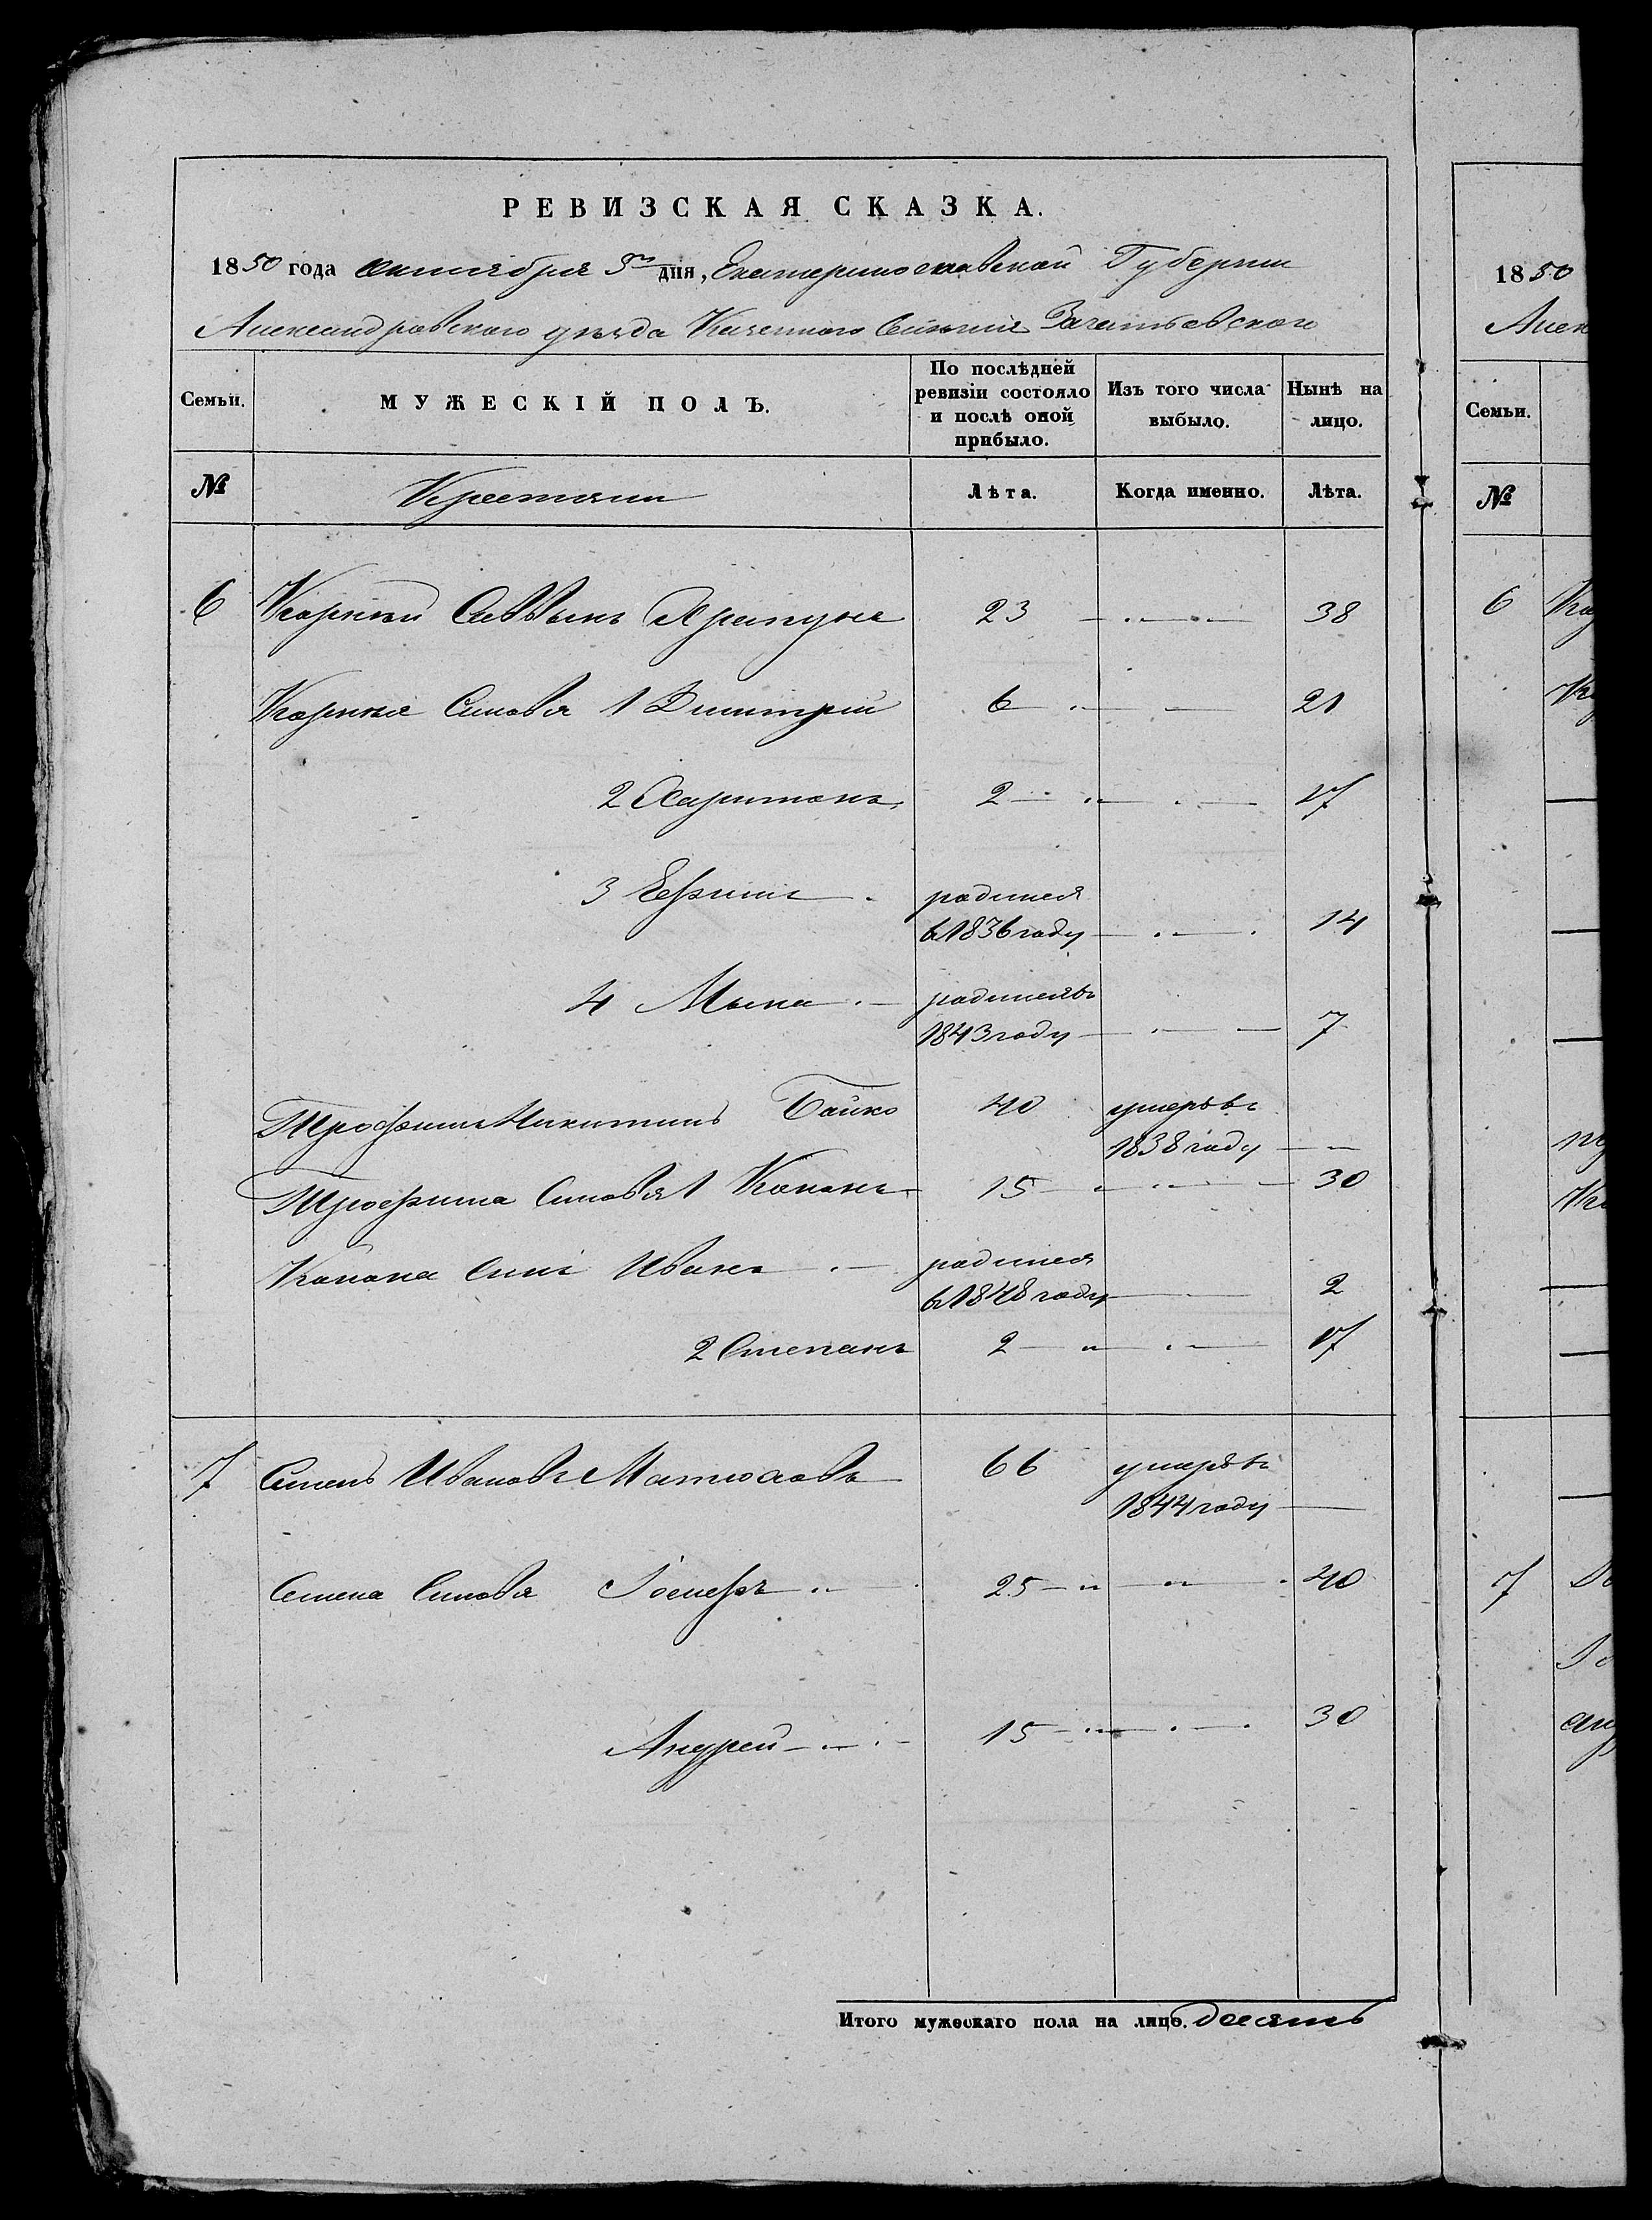 РЕВИЗСКАЯ СКАЗКА.
1850 года октября 5го дня, Екатеринославской Губернии
Александровского уезда Казенного Селения Зачатьевского
Семьи. МУЖЕСКІЙ ПОЛЪ. По послѣдней ревизіи состояло и послѣ оной прибыло. Изъ того числа выбыло. Нынѣ на лицо.
№ Крестяни Лѣта. Когда именно. Лѣта.
6 Корней Саввынъ Храпунъ 23 38
Корнея Синовя 1 Димитрій 6 21
2 Харитонъ 2 17
3 Ефримъ родился в 1836 году 14
4 Мына родился въ 1843 году 7
Трофимъ Никитинъ Бойко 40 умеръ въ 1838 году
Трофима Синовя 1 Кононъ 15 30
Конона Синъ Иванъ родился в 1848 году 2
2 Степанъ 2 17
7 Семенъ Ивановъ Матюховъ 66 умеръ въ 1844 году
Семена Синовя Іосифъ 25 40
Андрей 15 30
Итого мужескаго пола на лицо. десять
1850
Алек
Семьи.
№
6
7